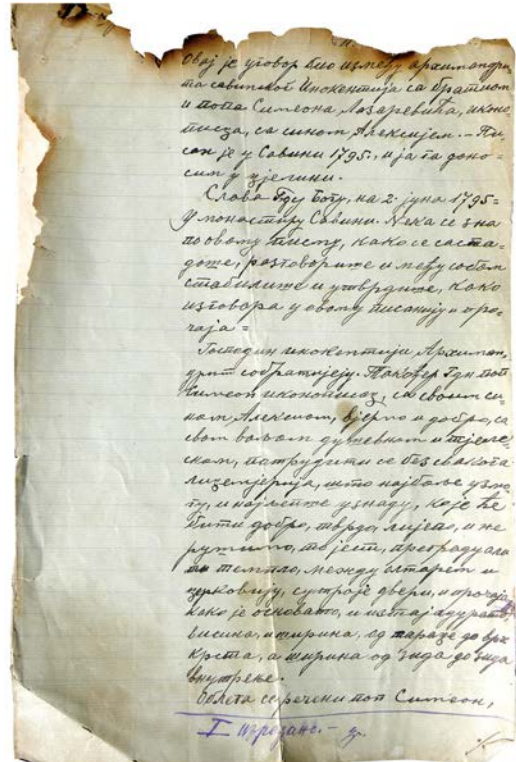 Овај је уговор био између архимандри-
та савинског Инокентија са братиом
и попа Симеона Лазаревића, иконо-
писца, са сином Алексијем. – Пи-
сан је у Савини 1795., и ја га доно-
сим у цјелини.
Слава Гду Богу, на 2. јуна 1795=
У монастиру Савини. Нека се зна
по овому писму, како се саста-
доше, разговорише и међу собом
стабилише и утврдише, како
изговара у овому писанију и про-
чаја =
Господин инокентији Архиман-
дрит собратијеју. Такођер Гдн поп
Симеон иконописац, са своим си-
ном Алексиом, вјерно и добро, са
свом вољом душевном и тјелес-
ском, потрудити се без свакога
лицемјерија, што најбоље узмо-
гу, и најљепше узнаду, које ће
бити добро, тврдо, лијепо, и не
ружимо, то јест, преграду али
ти темпло, между олтарем и
церковију, су троје двери, и прочаја
како је основато, и изтај адурато
висина, и ширина, од тараце до врх
крста, а ширина од зида до зида
внутрење.
Облега се речени поп Симеон,
I изрезано. –